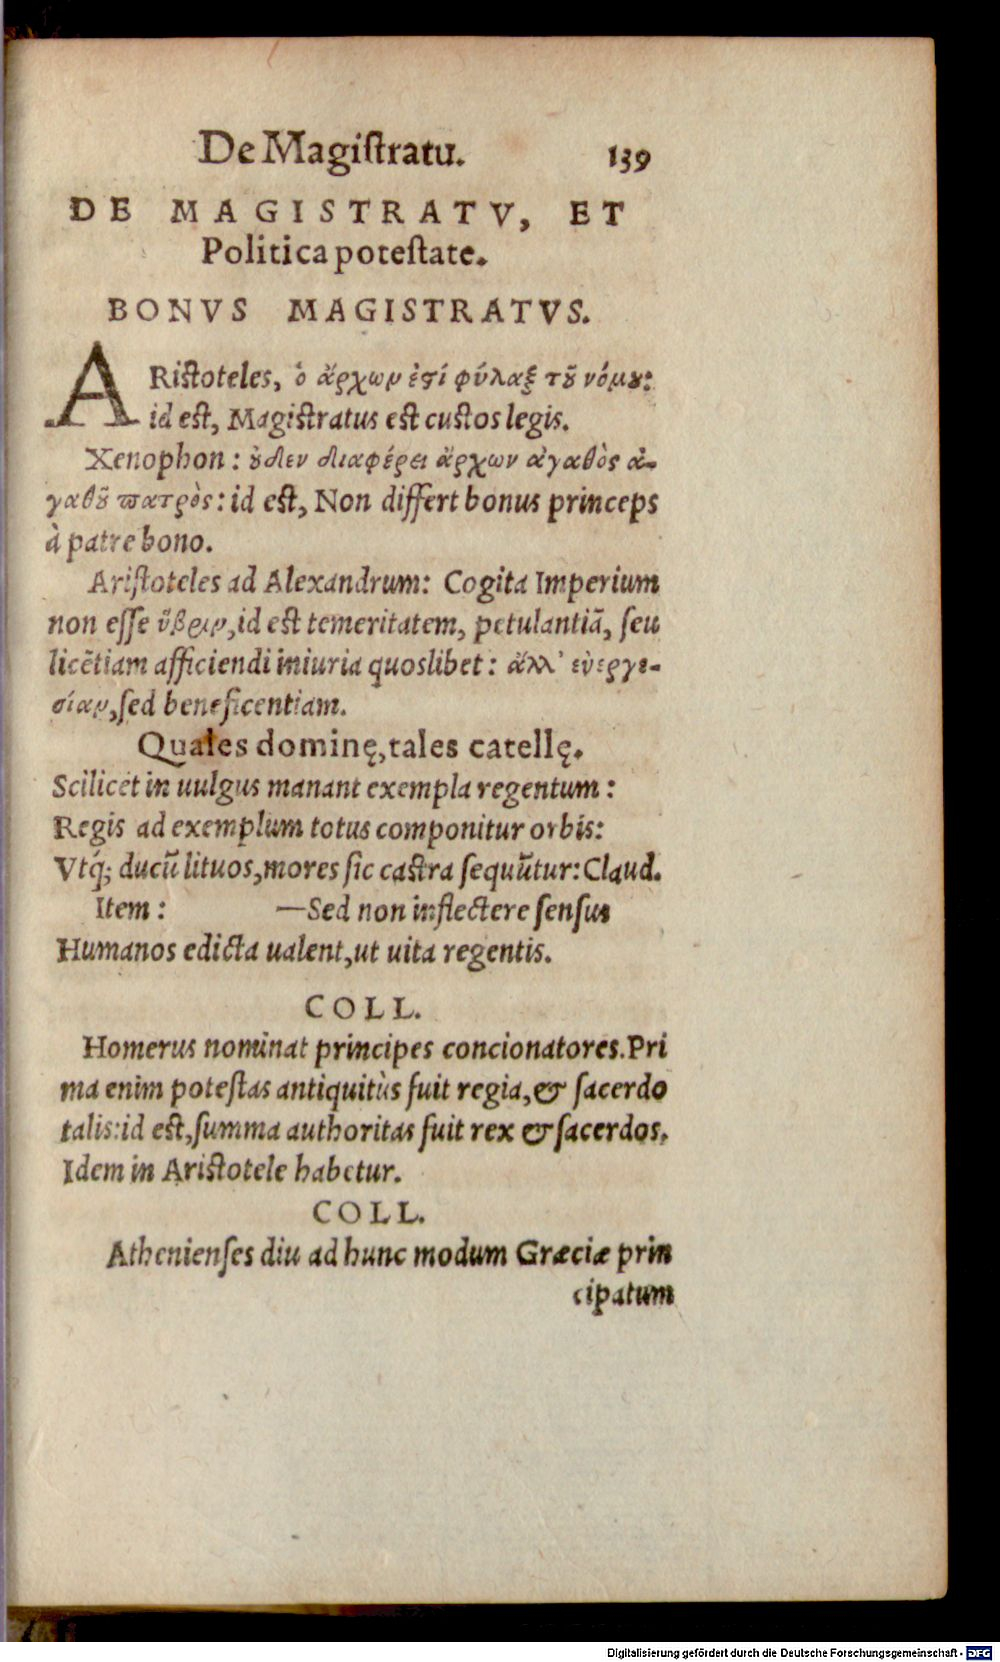 De Magiſtratu. 139
DE MAGISTRATV, ET
Politica poteſtate.
BONVS MAGISTRATVS.
ARiſtoteles, ὁ ἄρχων ἐστί φύλαξ τȣ͂ νόμȣ:
id eſt, Magiſtratus eſt cuſtos legis.
Xenophon: ȣ̓δεν διαφέρει ἄρχων ἀγαθὸς ἀ-
γαθȣ͂ πατρὸς: id eſt, Non differt bonus princeps
à patre bono.
Ariſtoteles ad Alexandrum: Cogita Imperium
non eſſe ὕβριν, id eſt temeritatem, petulantiã, ſeu
licẽtiam afficiendi iniuria quoslibet: ἄλλ' εὐεργε-
σίαν, ſed beneficentiam.
Quales dominę, tales catellę.
Scilicet in uulgus manant exempla regentum:
Regis ad exemplum totus componitur orbis:
Vtq́; ducũ lituos, mores ſic caſtra ſequũtur: Claud.
Item: —Sed non inflectere ſenſus
Humanos edicta ualent, ut uita regentis.
COLL.
Homerus nominat principes concionatores. Pri
ma enim poteſtas antiquitùs fuit regia, & ſacerdo
talis: id eſt, ſumma authoritas fuit rex & ſacerdos.
Idem in Ariſtotele habetur.
COLL.
Athenienſes diu ad hunc modum Græciæ prin
cipatum
Digitalisierung gefördert durch die Deutsche Forschungsgemeinschaft - DFG